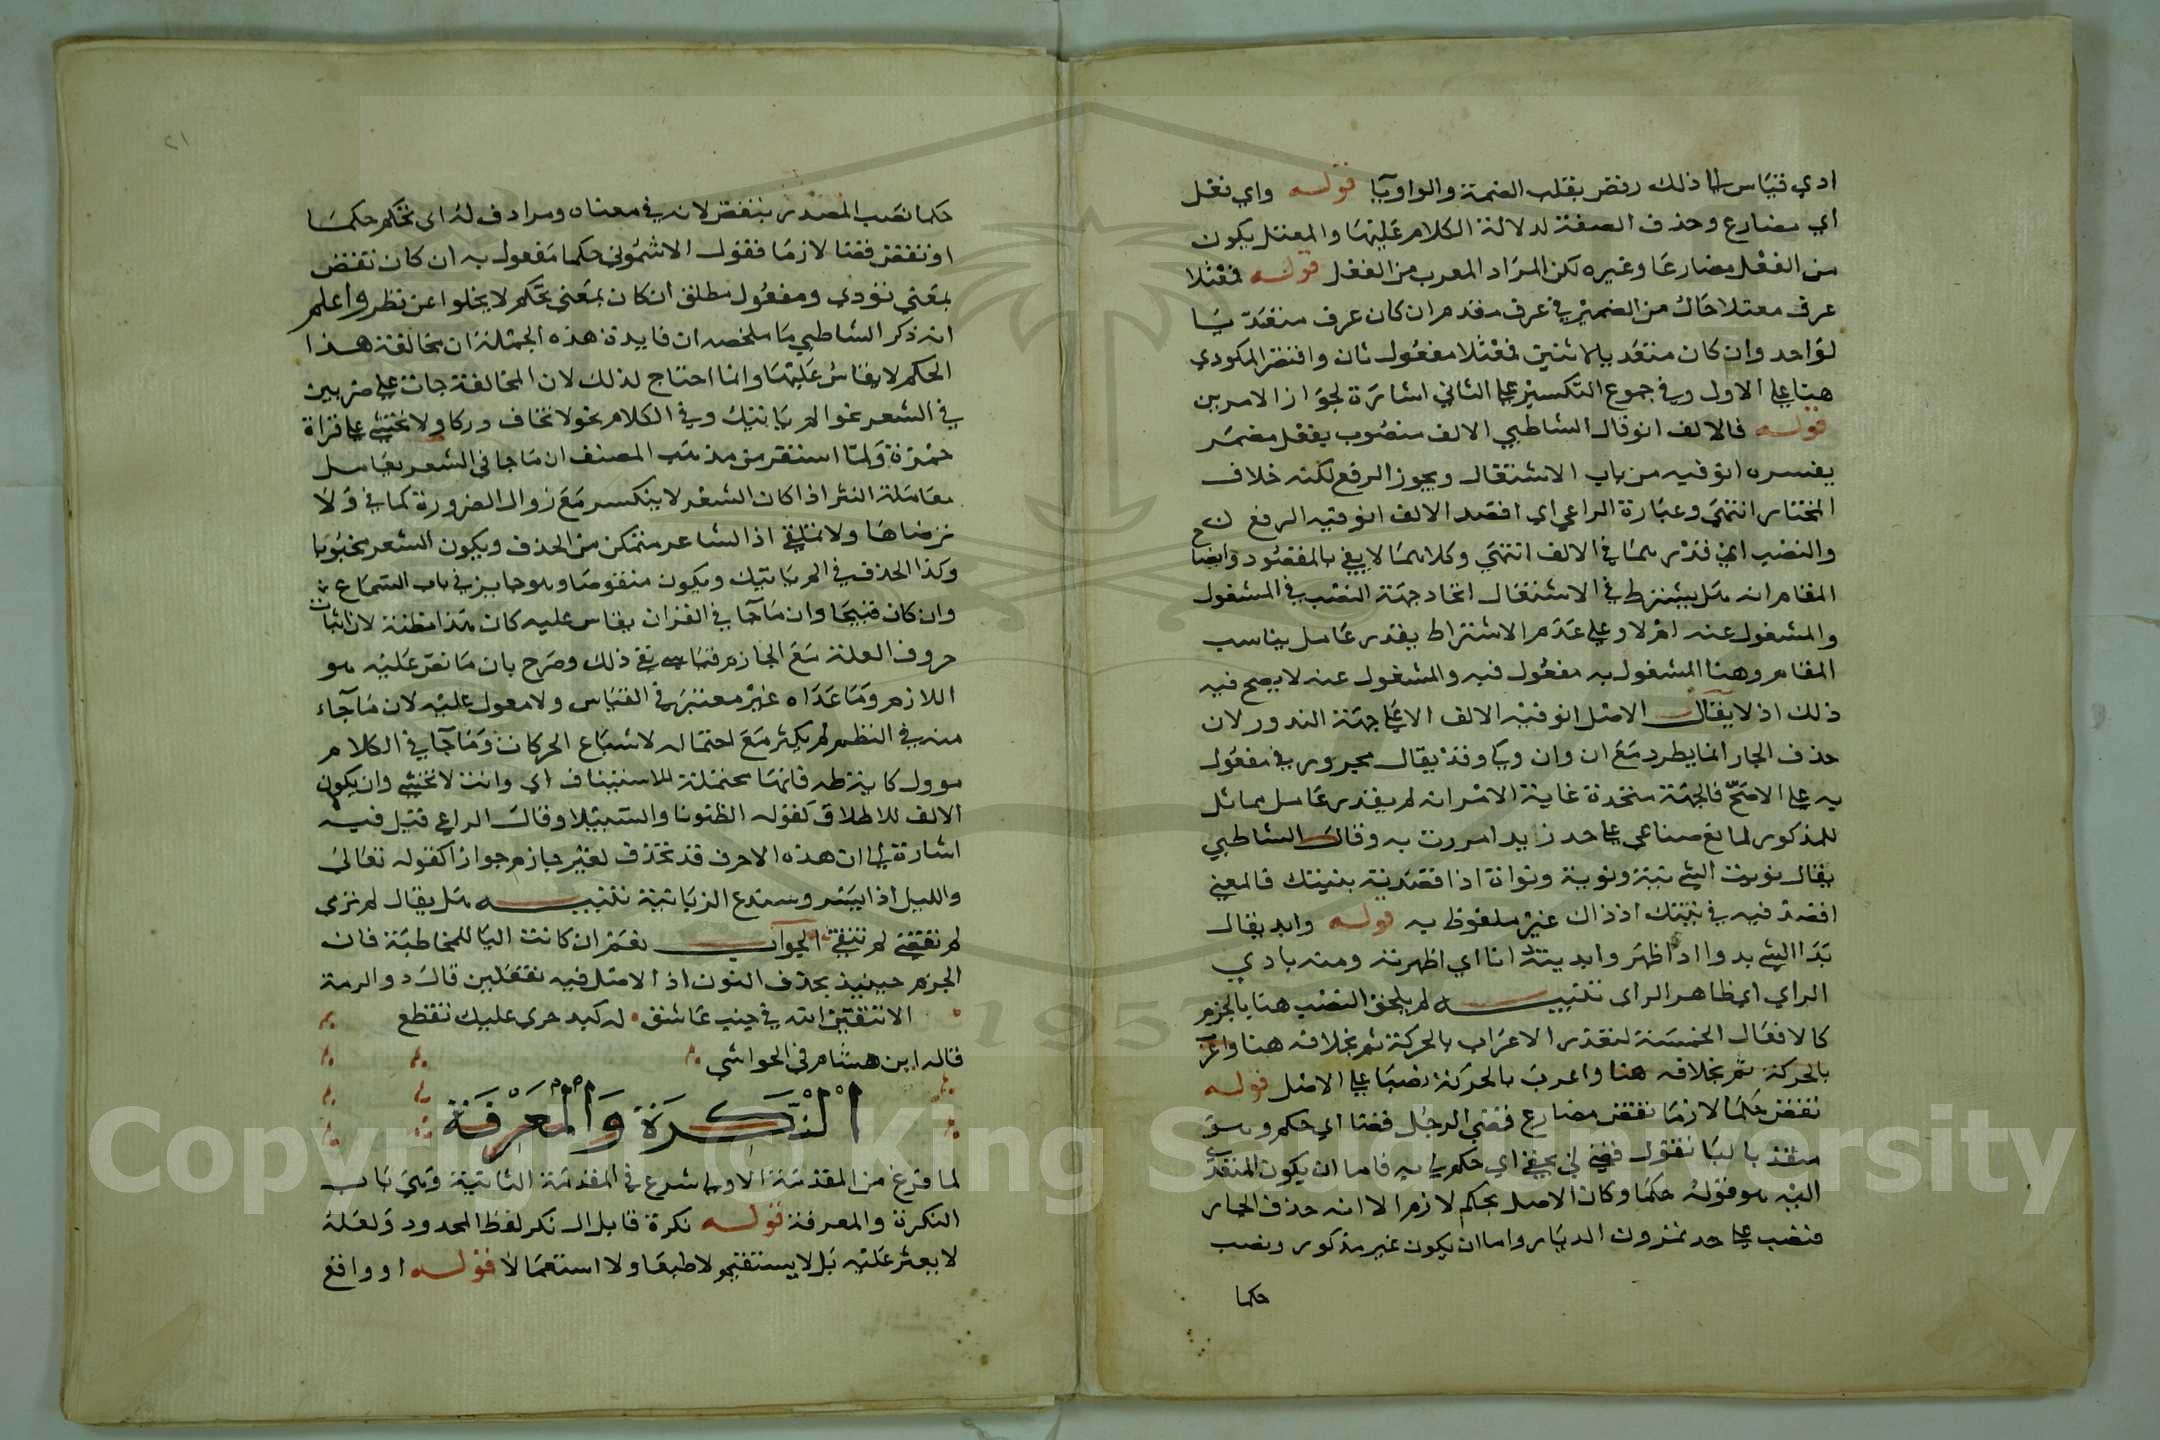 ادي فقياس الا ذلك رفض بقلب الضمة والواو يآ قولـه واي فعل
اي مضارع وحذف الصفة لدلالة الكلام عليها والمعتل يكون
من الفعل مضارعا وغيره لكن المراد المعرب من الفعل قولـه فمعتلا
عرف معتلا حال من الضمير في عرف مقدم ان كان عرف متعد يا
لواحد وان كان متعد يا لاثنين فمعتلا مفعول ثان واقتصر المكودي
هنا على الاول وفي جموع التكسير على الثاني اشارة لجواز الامرين
قولـه فالالف انو قال الشاطبي الالف منصوب بفعل مضمر
يفسره انو فيه من باب الاشتغال ويجوز الرفع لكنه خلاف
المختار انتهى وعبارة الراعي اي اقصد الالف انو فيه الرفع
والنصب اي قدرهما في الالف انتهى وكلاهما لا يفي بالمقصود وايضا
المقام انه هل يشترط في الاشتغال اتحاد جهة النصب في المشغول
والمشغول عنه ام لا وعلى عدم الاشتراط يقدر عامل يناسب
المقام وهنا المشغول به مفعول فيه والمشغول عنه لا يصح فيه
ذلك اذ لا يقال الاصل انو فيه الالف الا على جهة الندور لان
حذف الجار انما يطرد مع ان وان وكي وقد يقال مجرور في مفعول
به على الاصح فالجهة متحدة غاية الامر انه لم يقدر عامل مماثل
للمذكور لمانع صناعي على حد زيدا مررت به وقال الشاطبي
يقال نويت الشي نية ونوية ونواة اذا قصدته بنيتك فالمعنى
اقصد فيه في نيتك اذ ذاك غير ملفوظ به قولـه وابد يقال
بدا الشي بدوا اذا ظهر وابديته انا اي اظهرته ومنه بادي
الراي اي ظاهر الراى تنبيــه لم يلحق النصب هنا بالجزم
كالافعال الخمسة لتقدير الاعراب بالحركة ثم بخلافه هنا واعرب
بالحركة ثم بخلافه هنا واعرب بالحركة نصبا على الاصل قولـه
تقض حكما لازما تقض مضارع قضى الرجل قضا اي حكم وهو
متعد بالبا تقول قضى لي بحقي اي حكم لي به فاما ان يكون المتعدي
اليه هو قوله حكما وكان الاصل بحكم لازم الا انه حذف الجار
فنصب على حد تمرون الديار واما ان يكون غير مذكور ونصب
حكما
٢١
حكما نصب المصدر بتقض لانه في معناه ومرادف له اى تحكم حكما
او تقض قضا لازما فقول الاشموني حكما مفعول به ان كان تقض
بمعنى تؤدي ومفعول مطلق ان كان بمعنى تحكم لا يخلوا عن نظر واعلم
انه ذكر الشاطبي ما ملخصه ان فايدة هذه الجملة ان مخالفة هذا
الحكم لا يقاس عليها وانما احتاج لذلك لان المخالفة جات على ضربين
في الشعر نحو الم ياتيك وفي الكلام نحو لا تخاف دركا ولا تخشى على قراة
حمزة ولما استقر من مذهب المصنف ان ما جا في الشعر يعامل
معاملة النثر اذا كان الشعر لا ينكسر مع زوال الضرورة كما في ولا
ترضاها ولا تملق اذ الشاعر متمكن من الحذف ويكون الشعر مخبونا
وكذا الحذف في الم ياتيك ويكون منقوصا وهو جايز في باب السماع
وان كان قبيحا وان ما جا في القران يقاس عليه كان هذا مظنة لان اثبات
حروف العلة مع الجازم قياسي نفى ذلك وصرح بان ما نص عليه هو
اللازم وما عداه غير معتبر في القياس ولا معول عليه لان ما جآء
منه في النظم لم يكثر مع احتماله لاشباع الحركات وما جا في الكلام
موول كاية طه فانها محتملة للاستيناف اي وانت لا تخشى وان يكون
الالف للاطلاق كقوله الظنونا والسبيلا وقال الراعي قيل فيه
اشارة الى ان هذه الاحرف قد تحذف لغير جازم جوازا كقوله تعالى
والليل اذا يسر وسندع الزبانية تنبيــه هل يقال لم ترمي
لم تقضي لم تنقي الجواب نعم ان كانت اليا للمخاطبة فان
الجزم حينيذ بحذف النون اذ الاصل فيه تفعلين قال ذو الرمة
الا تتقين الله في جنب عاشق له كبد حرى عليك تقطع
قاله ابن هشام في الحواشي
النكرة والمعرفة
لما فرغ من المقدمة الاولى شرع في المقدمة الثانية وهي باب
النكرة والمعرفة قولـه نكرة قابل ال نكر لفظ المحدود ولعله
لا يعثر عليه بل لا يستقيم لا طبعا ولا استعمالا قولـه او واقع
Copyright © King Saud University
1957